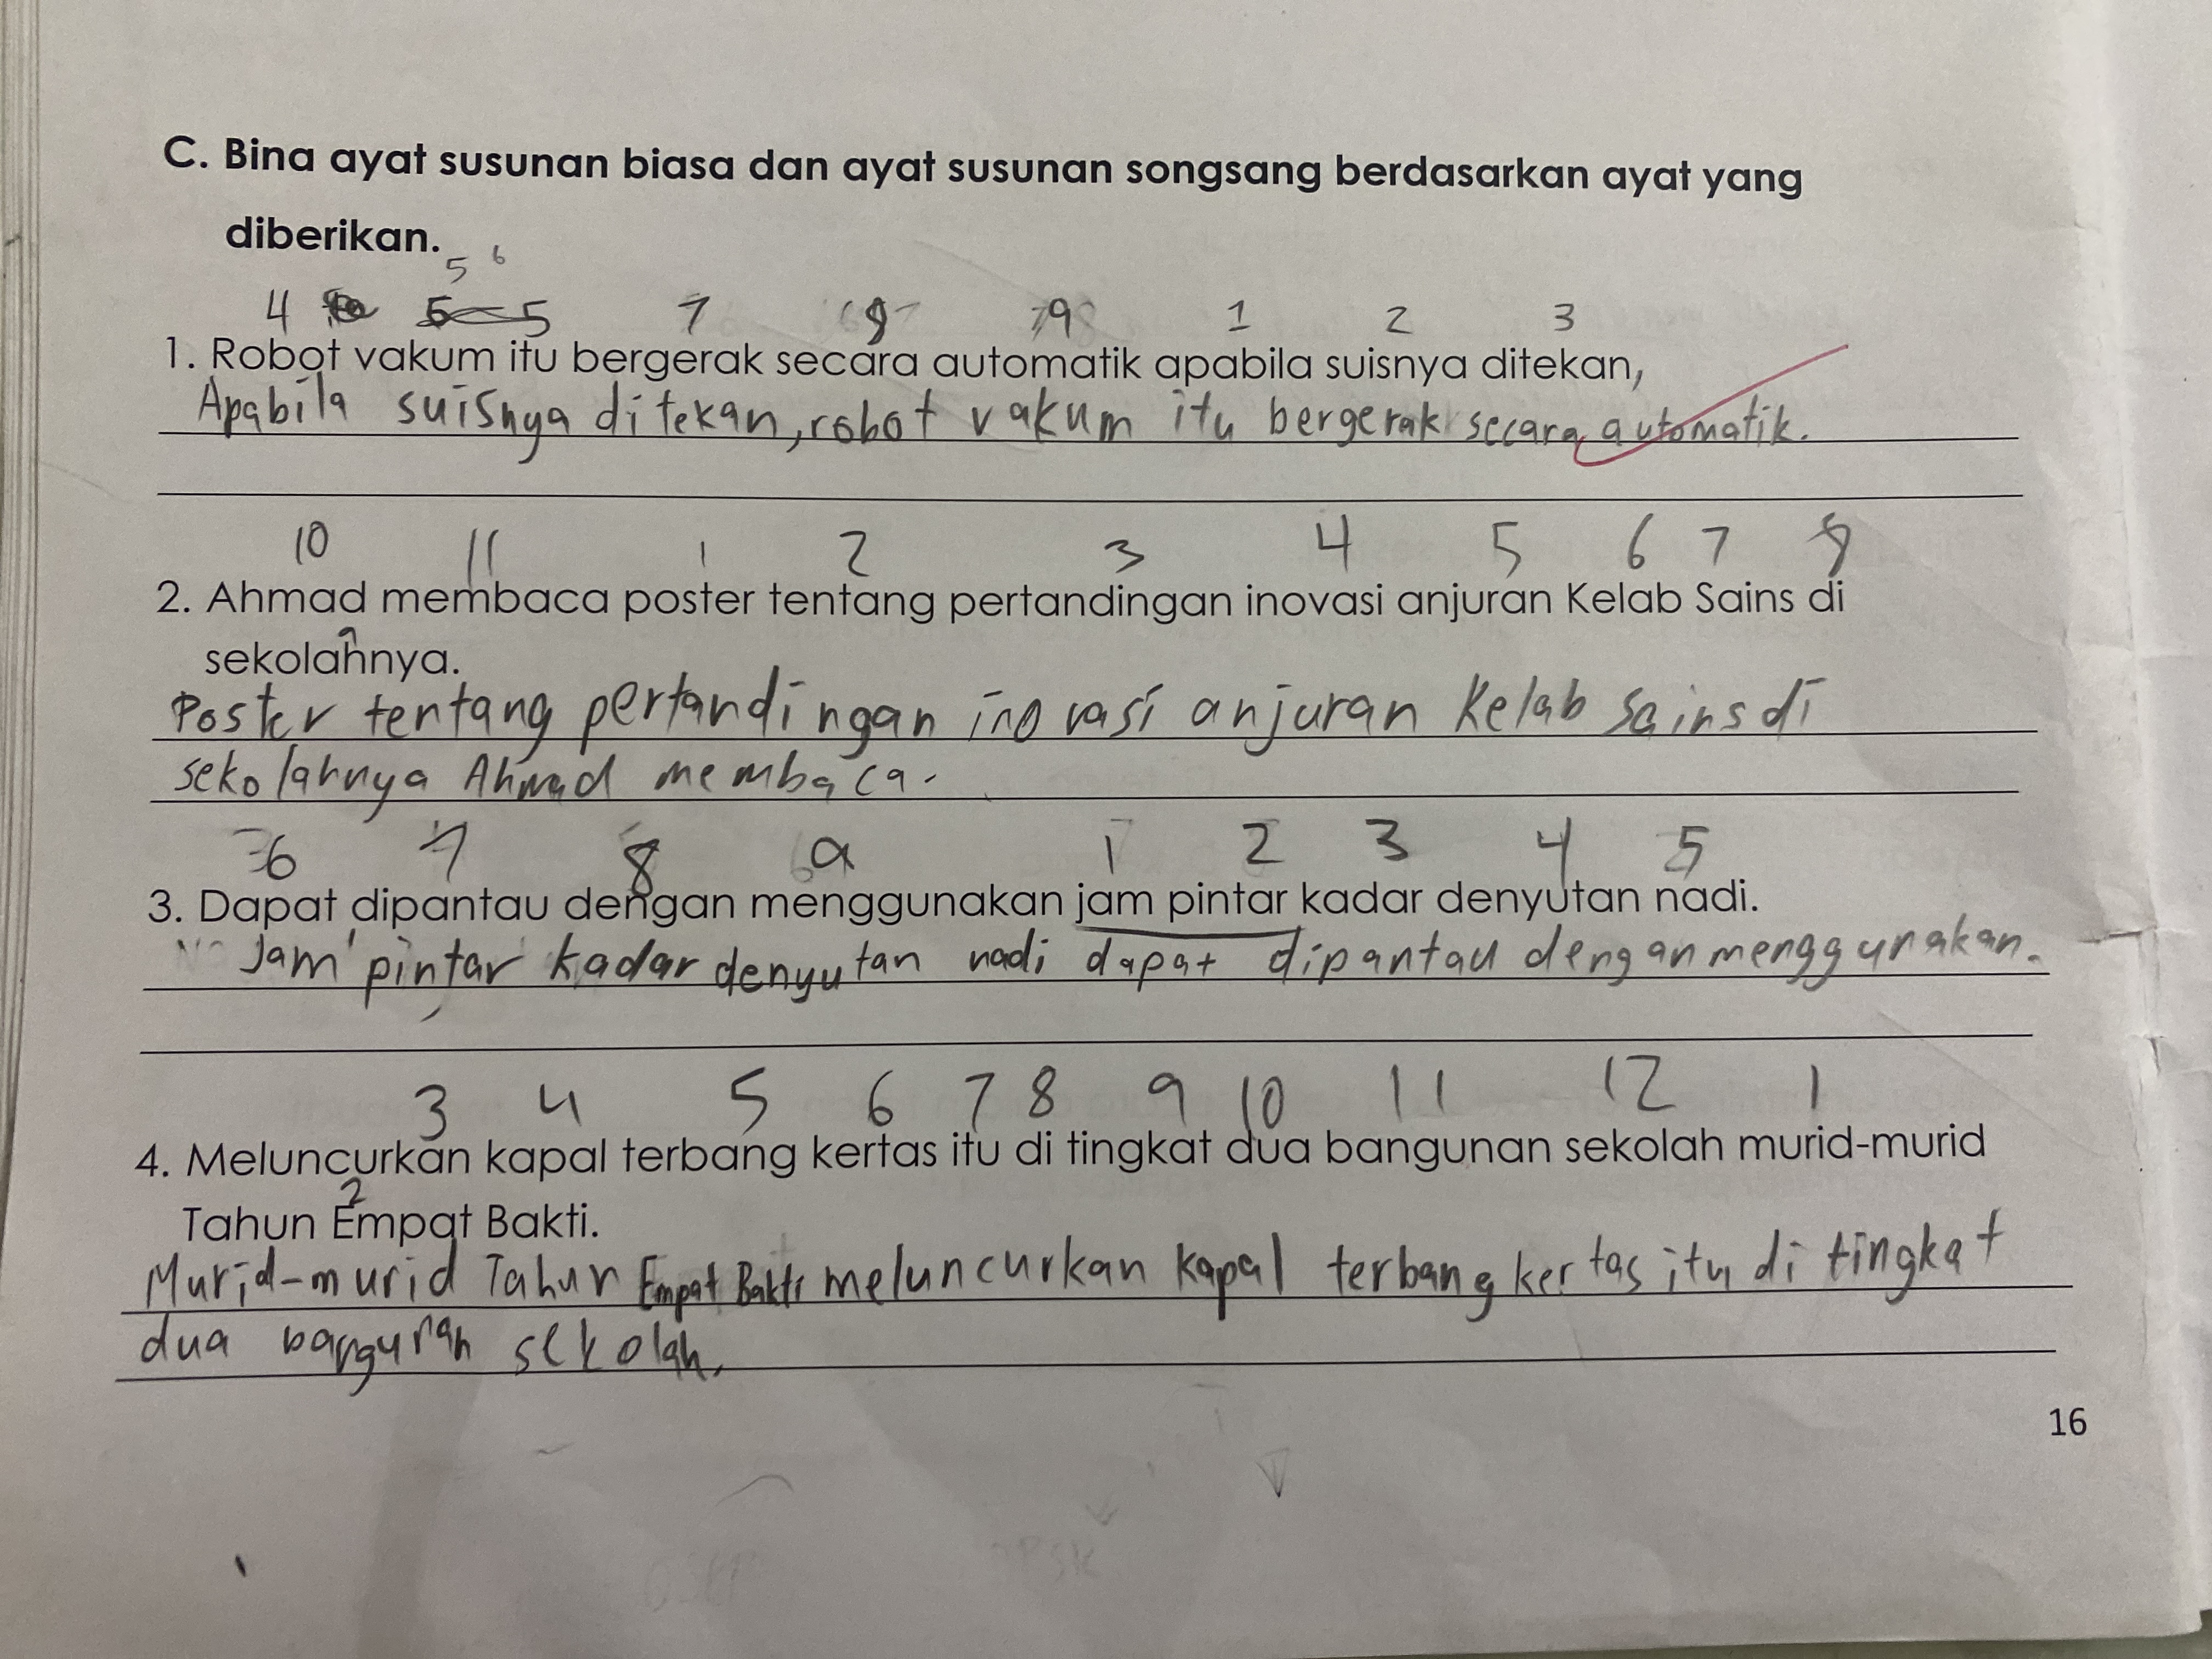 C. Bina ayat susunan biasa dan ayat susunan songsang berdasarkan ayat yang
diberikan.
5 6
4 5 5 7 8 9 1 2 3
1. Robot vakum itu bergerak secara automatik apabila suisnya ditekan,
Apabila suisnya ditekan, robot vakum itu bergerak secara automatik.
10 11 1 2 3 4 5 6 7 8
2. Ahmad membaca poster tentang pertandingan inovasi anjuran Kelab Sains di
9
sekolahnya.
Poster tentang pertandingan inovasi anjuran Kelab Sains di
sekolahnya Ahmad membaca.
6 7 8 9 1 2 3 4 5
3. Dapat dipantau dengan menggunakan jam pintar kadar denyutan nadi.
jam pintar kadar denyutan nadi dapat dipantau dengan menggunakan.
3 4 5 6 7 8 9 10 11 12 1
4. Meluncurkan kapal terbang kertas itu di tingkat dua bangunan sekolah murid-murid
2
Tahun Empat Bakti.
Murid-murid Tahun Empat Bakti meluncurkan kapal terbang kertas itu di tingkat
dua bangunan sekolah.
16